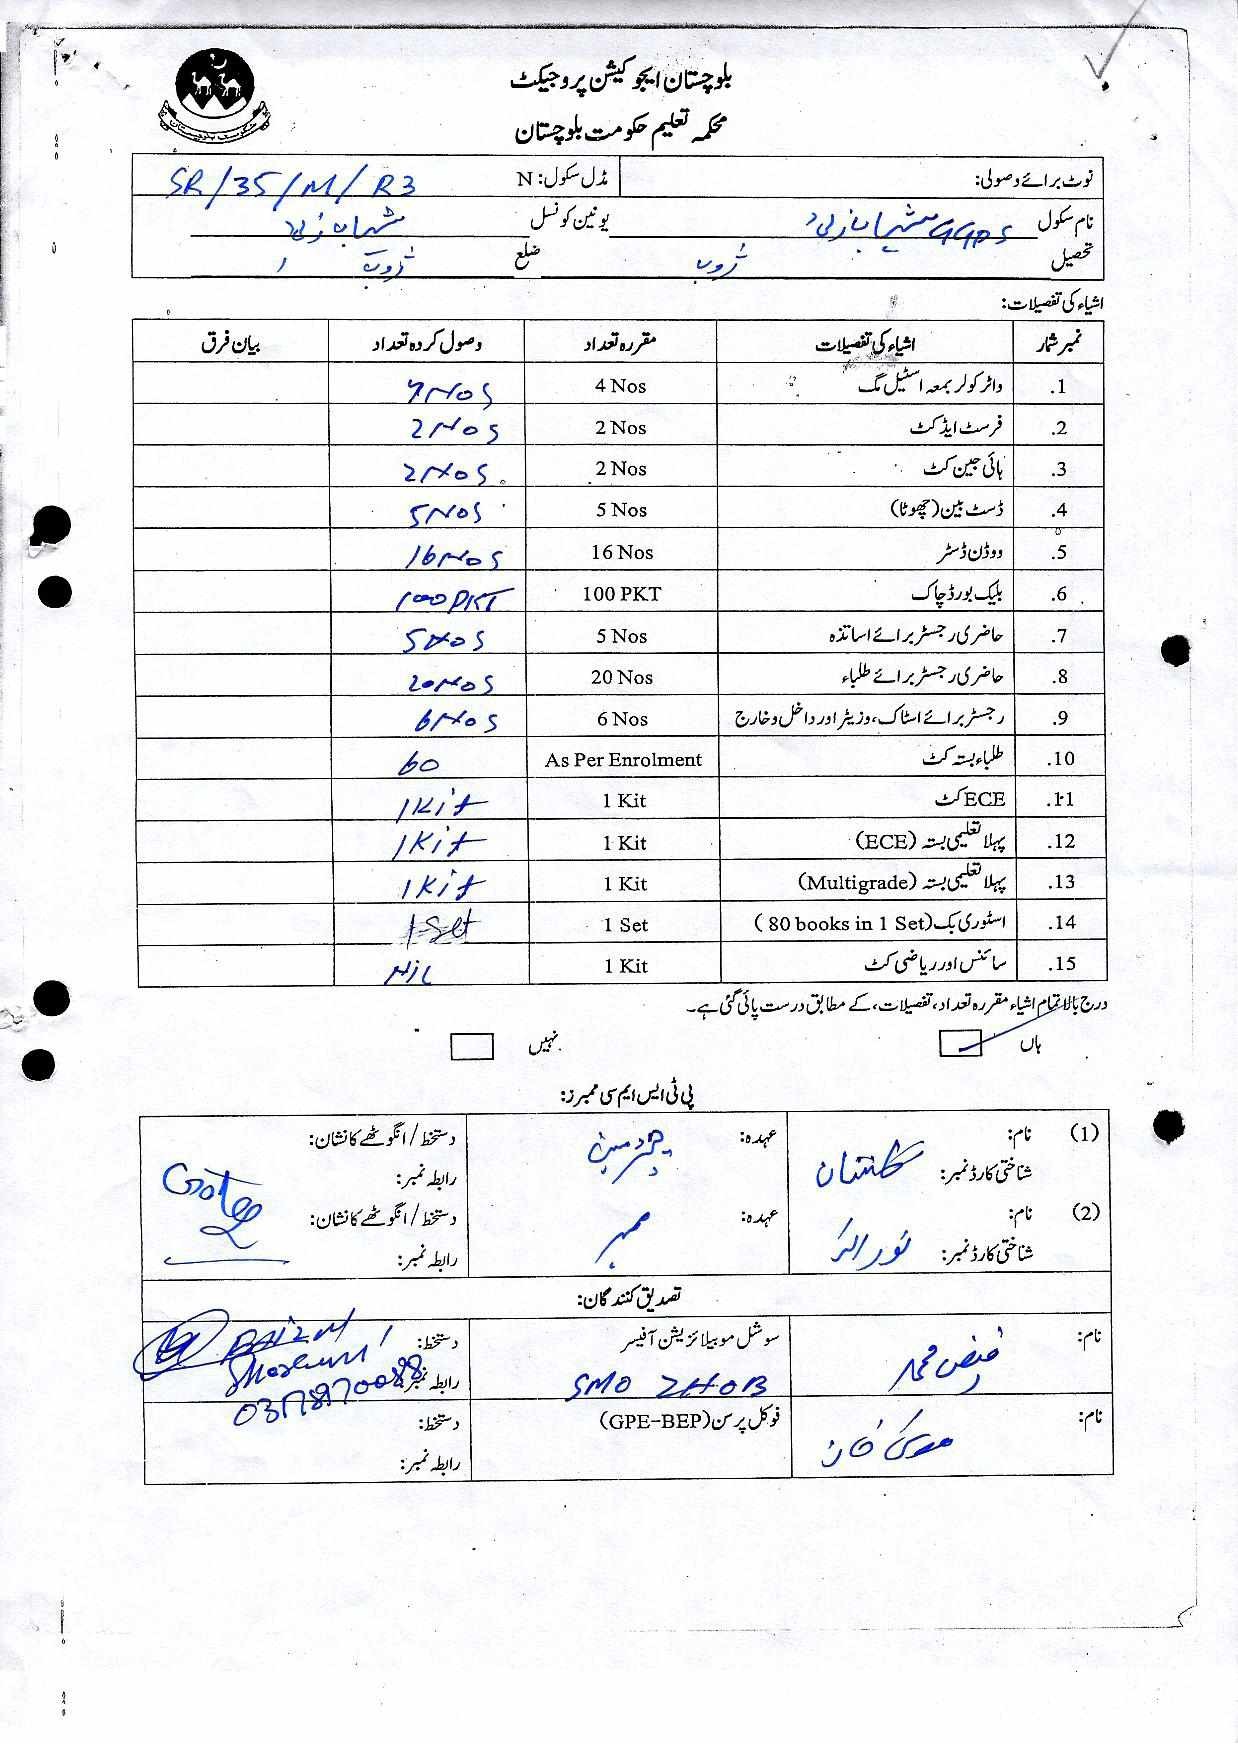 بلوچستان ایجوکیشن پروجیکٹ
محکمہ تعلیم حکومت بلوچستان
نوٹ برائے وصولی: مڈل سکول: N SR/35/M/R3
نام سکول GGPS یونین کونسل
تحصیل ژوب ضلع ژوب
اشیاء کی تفصیلات:
نمبر شمار اشیاء کی تفصیلات مقررہ تعداد وصول کردہ تعداد بیان فرق
1. واٹر کولر بمعہ اسٹیل مگ 4 Nos 4 Nos
2. فرسٹ ایڈ کٹ 2 Nos 2 Nos
3. ہائی جین کٹ 2 Nos 2 Nos
4. ڈسٹ بین (چھوٹا) 5 Nos 5 Nos
5. ووڈن ڈسٹر 16 Nos 16 Nos
6. بلیک بورڈ چاک 100 PKT 100 PKT
7. حاضری رجسٹر برائے اساتذہ 5 Nos 5 Nos
8. حاضری رجسٹر برائے طلباء 20 Nos 20 Nos
9. رجسٹر برائے اسٹاک، وزیٹر اور داخل و خارج 6 Nos 6 Nos
10. طلباء بستہ کٹ As Per Enrolment 60
11. ECE کٹ 1 Kit 1 Kit
12. پہلا تعلیمی بستہ (ECE) 1 Kit 1 Kit
13. پہلا تعلیمی بستہ (Multigrade) 1 Kit 1 Kit
14. اسٹوری بک (80 books in 1 Set) 1 Set 1 Set
15. سائنس اور ریاضی کٹ 1 Kit Nil
درج بالا تمام اشیاء مقررہ تعداد، تفصیلات، کے مطابق درست پائی گئی ہے۔
ہاں نہیں
پی ٹی ایس ایم سی ممبرز:
(1) نام: عہدہ: چیئرمین دستخط / انگوٹھے کا نشان:
شناختی کارڈ نمبر: رابطہ نمبر:
(2) نام: عہدہ: ممبر دستخط / انگوٹھے کا نشان:
شناختی کارڈ نمبر: رابطہ نمبر:
تصدیق کنندگان:
نام: فیض محمد سوشل موبیلائزیشن آفیسر دستخط:
SMO ZHOB رابطہ نمبر:
نام: موسیٰ خان فوکل پرسن (GPE-BEP) دستخط:
رابطہ نمبر: